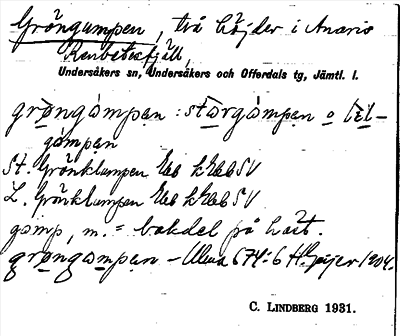 Gröngumpen, två höjder i Anaris
Renbetesfjäll,
Undersåkers sn, Undersåkers och Offerdals tg, Jämtl. l.
grøngòmpen : stòrgòmpen o lèl-
gòmpen
St. Grönklumpen Eeb kKab SV
L. Grönklumpen Eeb kKab SV
gomp, m. = bakdel på häst.
grøngompen – Ulma 674:6 H. Geijer 1904.
C. LINDBERG 1931.